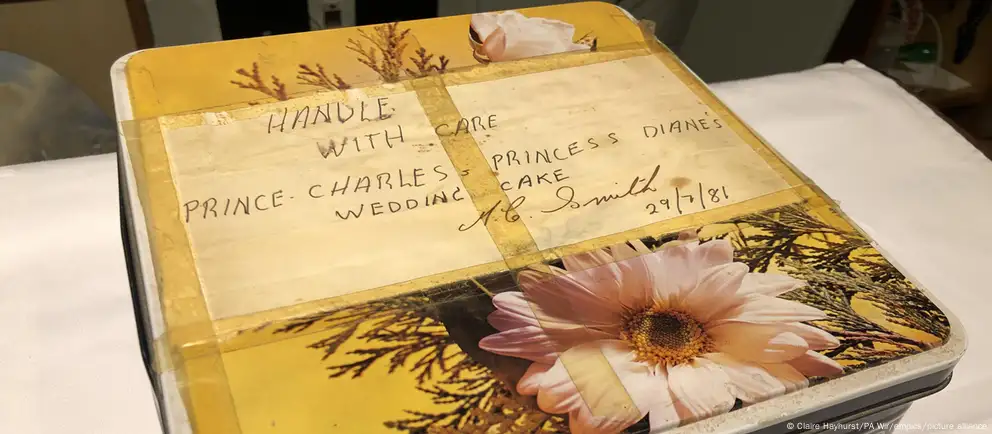 HANDLE
WITH CARE
PRINCE CHARLES & PRINCESS DIANE'S
WEDDING CAKE
M.C. Smith 29/7/81
© Claire Hayhurst/PA Wir/empics/picture alliance